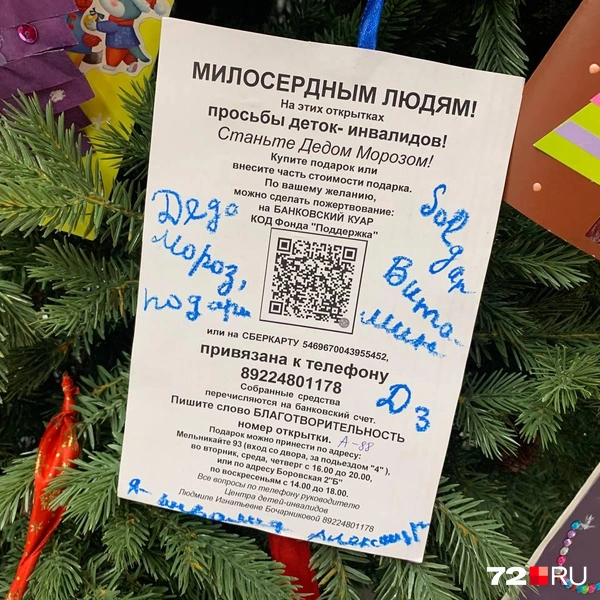 МИЛОСЕРДНЫМ ЛЮДЯМ!
На этих открытках
просьбы деток- инвалидов!
Станьте Дедом Морозом!
Купите подарок или
внесите часть стоимости подарка.
По вашему желанию,
можно сделать пожертвование:
на БАНКОВСКИЙ КУАР
КОД Фонда "Поддержка"
Дедо
Мороз,
подари
Вита-
мин
Д3
или на СБЕРКАРТУ 5469670043955452,
привязана к телефону
89224801178
Собранные средства
перечисляются на банковский счет.
Пишите слово БЛАГОТВОРИТЕЛЬНОСТЬ
номер открытки. А-88
Подарок можно принести по адресу:
Мельникайте 93 (вход со двора, за подъездом "4"),
во вторник, среда, четверг с 16.00 до 20.00,
или по адресу Боровская 2"Б"
по воскресеньям с 14.00 до 18.00.
Все вопросы по телефону руководителю
Центра детей-инвалидов
Людмиле Игнатьевне Бочарниковой 89224801178
Я-
72.RU